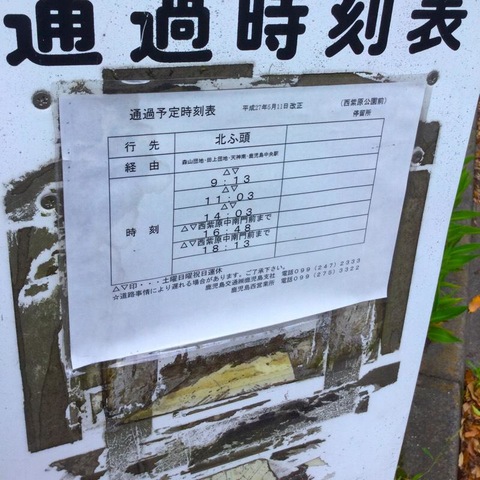 通過時刻表
通過予定時刻表 平成27年5月11日改正 (西紫原公園前)
停留所
行先 北ふ頭
経由 森山団地・田上団地・天神南・鹿児島中央駅
時刻
△▽
9:13
△▽
11:03
△▽
14:03
△▽西紫原中南門前まで
16:48
△▽西紫原中南門前まで
18:13
△▽印・・・土曜日曜祝日運休
☆道路事情により遅れる場合があります。ご了承下さい。
鹿児島交通㈱鹿児島支社 電話099(247)2333
鹿児島西営業所 電話099(275)3322